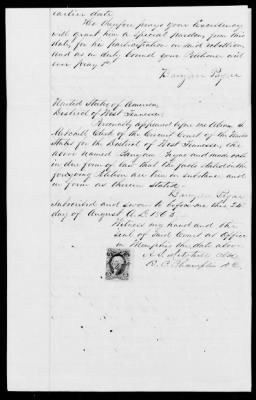 earlier date
He therefore prays your Excellency
will grant him a special pardon from this
duty for his participation in said rebellion
And as in duty bound your Petitioner will
ever pray &c
United States of America
District of West Tennessee
Personally appeared before me
Clerk of the Circuit Court of the United
States for the District of West Tennessee, the
above named and made oath
in due form of law that the facts stated in the
foregoing Petition are true in substance and
in form as therein stated.
Subscribed and sworn to before me this 24
day of August A.D. 186
Witness my hand and the
seal of said Court at office
in Memphis the date above
A. S. Mitchell Clk